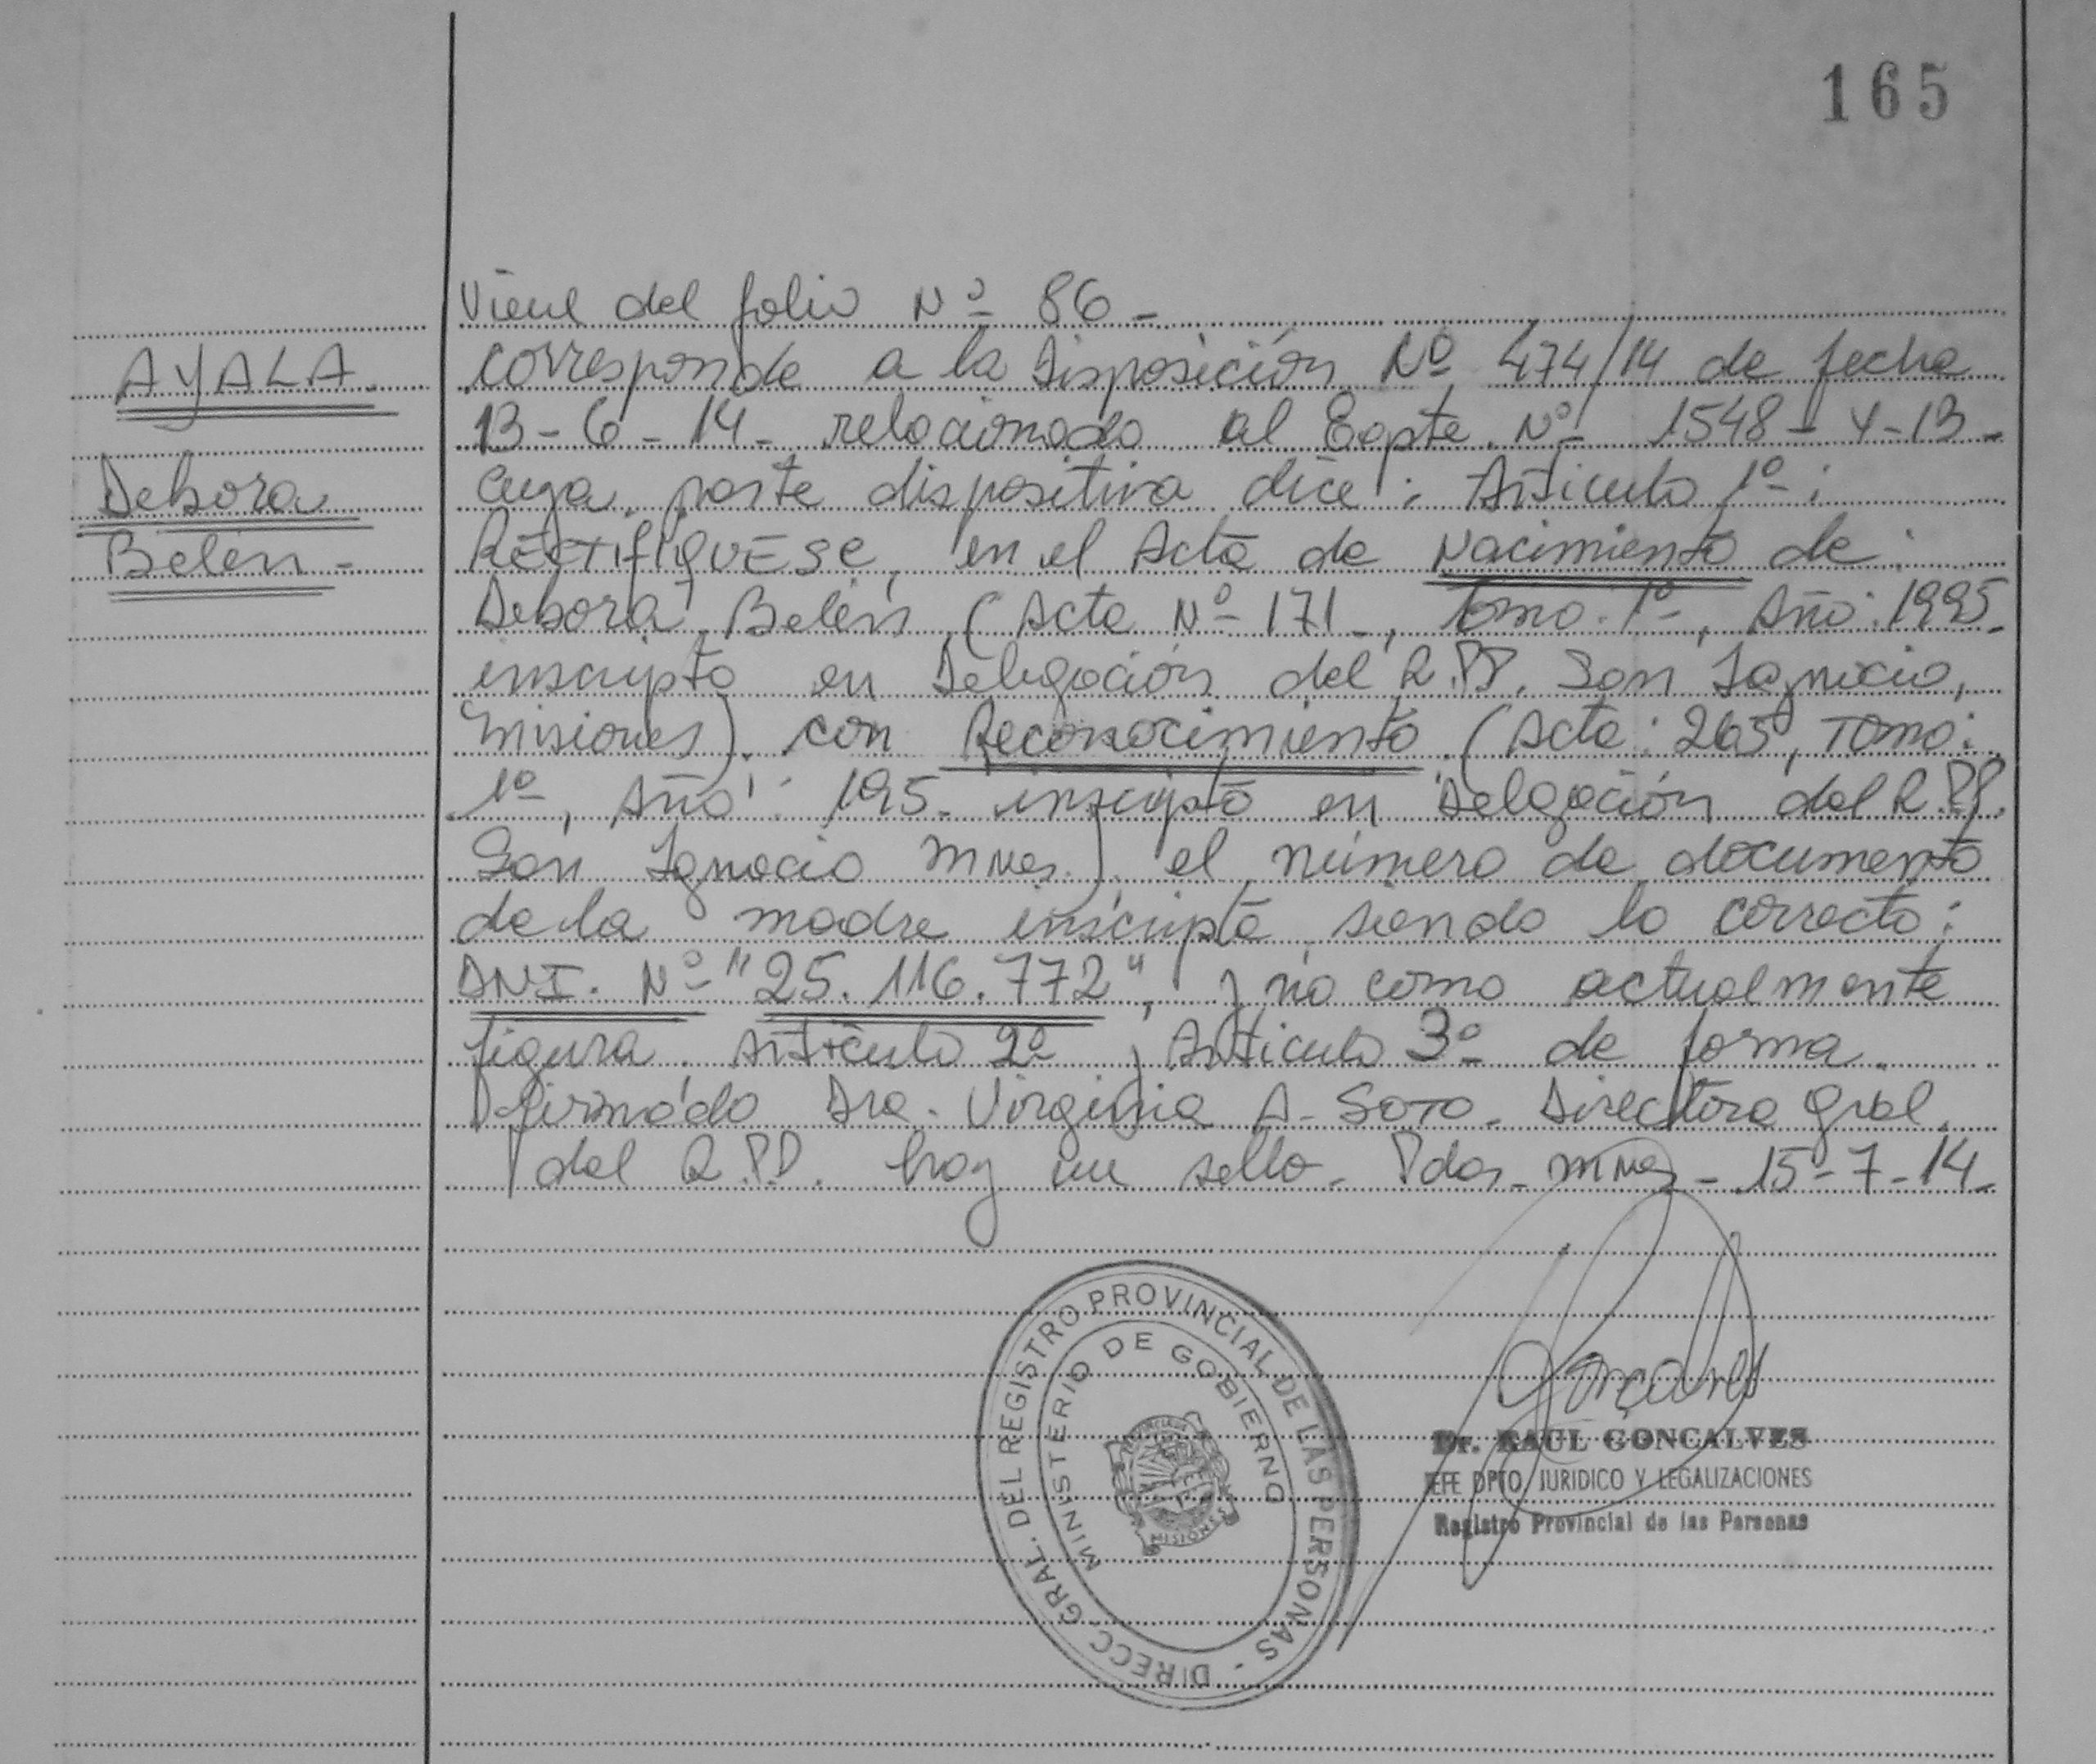 165
Viene del folio Nº 86-
AYALA
corresponde a la Disposición Nº 474/14 de fecha
13-6-14- relacionado al Expte. Nº 1548- Y-13-
Debora
cuya parte dispositiva dice: Artículo 1º:
Belén-
RECTIFIQUESE, en el Acta de Nacimiento de:
Debora Belén (Acta Nº 171-, Tomo: 1º-, Año: 1995-
inscripta en Delegación del R.P.P. San Ignacio,
Misiones) con Reconocimiento (Acta: 265, Tomo:
1º, Año: 195- inscripto en Delgación del R.P.P.
San Ignacio Mnes.) el número de documento
de la madre inscripta siendo lo correcto:
DNI. Nº "25.116.772", y no como actualmente
figura. Artículo 2º y Artículo 3º de forma.
Firmado Dra. Virginia A. Soto- Directora Gral.
del R.P.P. hay un sello- Pdas- Mnes- 15-7-14-
Goncalves
DIRECC. GRAL. DEL REGISTRO PROVINCIAL DE LAS PERSONAS -
MINISTERIO DE GOBIERNO
MISIONES
Dr. RAUL GONCALVES
JEFE DPTO. JURIDICO Y LEGALIZACIONES
Registro Provincial de las Personas